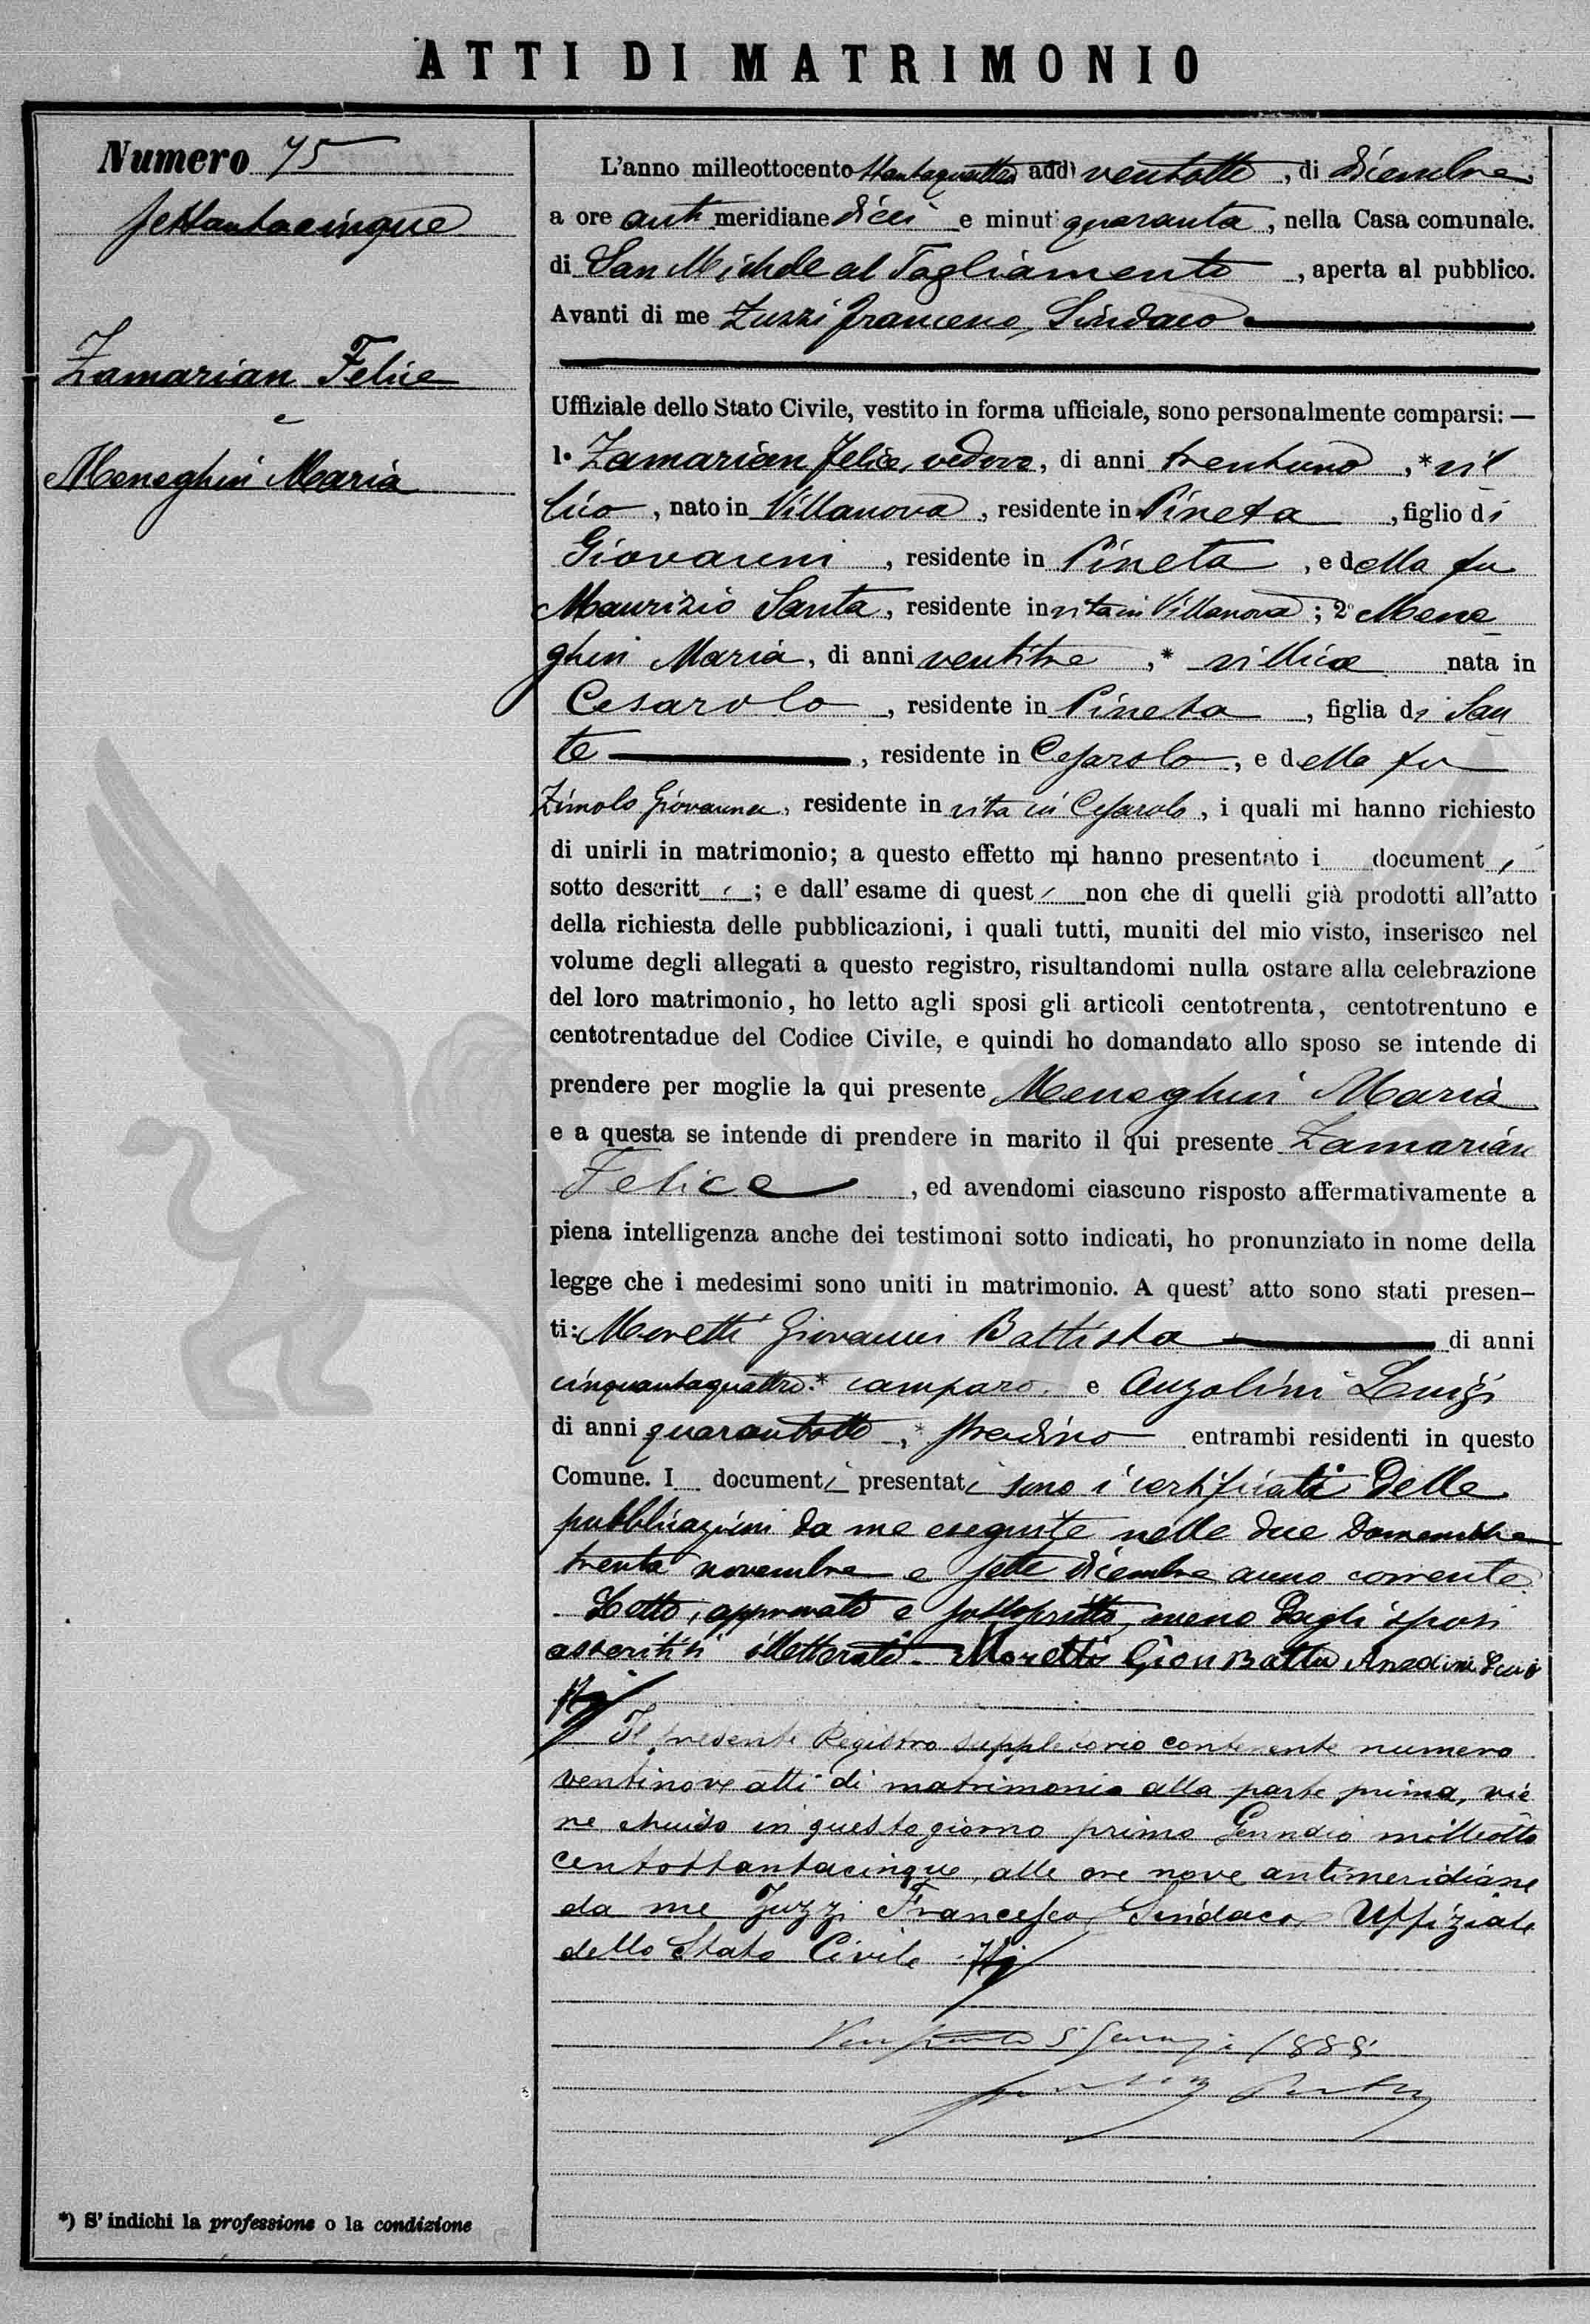 ATTI DI MATRIMONIO
Numero 75
settantacinque
Zamarian Felice
e
Meneghin Maria
L'anno milleottocento ottantaquattro addì ventotto, di dicembre
a ore anti meridiane dieci e minuti quaranta, nella Casa comunale.
di San Michele al Tagliamento, aperta al pubblico.
Avanti di me Zuzzi Francesco, Sindaco
Uffiziale dello Stato Civile, vestito in forma ufficiale, sono personalmente comparsi: —
1. Zamarian Felice, vedovo, di anni trentuno, * vil
lico, nato in Villanova, residente in Pineta, figlio di
Giovanni, residente in Pineta, e della fu
Maurizio Santa, residente in vita in Villanova; 2° Mene
ghin Maria, di anni ventitre, * villica nata in
Cesarolo, residente in Pineta, figlia di San
te, residente in Cesarolo, e della fu
Zimolo Giovanna, residente in vita in Cesarolo, i quali mi hanno richiesto
di unirli in matrimonio; a questo effetto mi hanno presentato i documenti
sotto descritti; e dall'esame di questi non che di quelli già prodotti all'atto
della richiesta delle pubblicazioni, i quali tutti, muniti del mio visto, inserisco nel
volume degli allegati a questo registro, risultandomi nulla ostare alla celebrazione
del loro matrimonio, ho letto agli sposi gli articoli centotrenta, centotrentuno e
centotrentadue del Codice Civile, e quindi ho domandato allo sposo se intende di
prendere per moglie la qui presente Meneghin Maria
e a questa se intende di prendere in marito il qui presente Zamarian
Felice, ed avendomi ciascuno risposto affermativamente a
piena intelligenza anche dei testimoni sotto indicati, ho pronunziato in nome della
legge che i medesimi sono uniti in matrimonio. A quest' atto sono stati presen-
ti: Moretti Giovanni Battista di anni
cinquantaquattro * camparo, e Anzolini Luigi
di anni quarantotto, * stradino entrambi residenti in questo
Comune. I documenti presentati sono i certificati delle
pubblicazioni da me eseguite nelle due Domeniche
trenta novembre e sette dicembre anno corrente
Letto, approvato e sottoscritto, meno dagli sposi
asseritisi illetterati. Moretti Gion Batta
Il presente Registro suppletorio contenente numero
ventinove atti di matrimonio alla parte prima, vie
ne chiuso in questo giorno primo Gennaio milleotto
centottantacinque, alle ore nove antimeridiane
da me Zuzzi Francesco Sindaco Uffiziale
dello Stato Civile
*) S'indichi la professione o la condizione